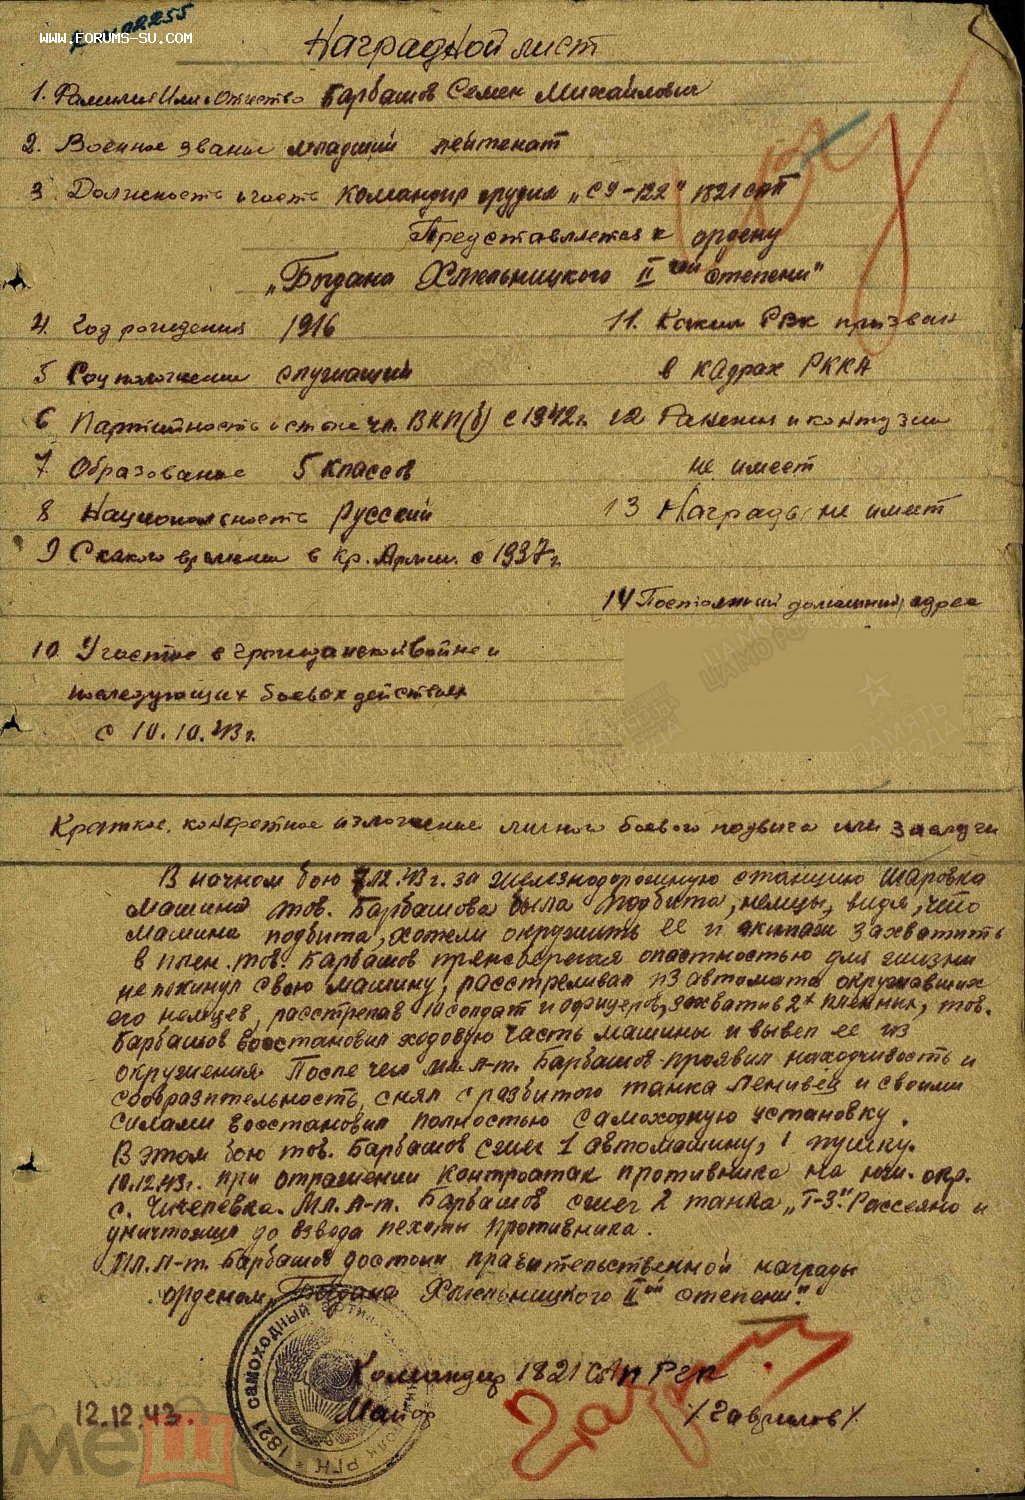 WWW.FORUMS-SU.COM
Наградной лист
1. Фамилия Имя Отчество Барбашов Семен Михайлович
2. Военное звание младший лейтенат
3 Должность и часть командир орудия „СУ-122" 1821 САП
Представляется к ордену
„Богдана Хмельницкого II ой степени"
4. Год рождения 1916
11. Каким РВК призван
в кадрах РККА
5 Соц положение служащий
6 Партийность и стаж чл. ВКП(б) с 1942 г.
12 Ранения и контузии
не имеет
7 Образование 5 классов
8 Национальность русский
13 Награды не имеет
9 С какого времени в Кр. Армии. с 1937 г.
14 Постоянный домашний адрес
10 Участие в гражданской войне и
последующих боевых действиях
с 10.10.43 г.
Краткое, конкретное изложение личного боевого подвига или заслуги
В ночном бою 7.12.43 г. за железнодорожную станцию Шаровка
машина тов. Барбашова была подбита, немцы, видя, что
машина подбита, хотели окружить ее и экипаж захватить
в плен. тов. Барбашов пренебрегая опастностью для жизни
не покинул свою машину, расстреливал из автомата окружавших
его немцев, расстреляв 10 солдат и офицеров, захватив 2х пленных, тов.
Барбашов восстановил ходовую часть машины и вывел ее из
окружения. После чего мл. л-т. Барбашов проявил находчивость и
сообразительность, снял с разбитого танка ленивец и своими
силами восстановил полностью самоходную установку.
В этом бою тов. Барбашов сжег 1 автомашину, 1 пушку.
10.12.43 г. при отражении контроатак противника на юж. окр.
с. Чичелевка. Мл. л-т. Барбашов сжег 2 танка „Т-3". Рассеяно и
уничтожил до взвода пехоты противника.
Мл. л-т. Барбашов достоин правительственной награды
орденом „Богдана Хмельницкого II ой степени".
Командир 1821 САП РГК
12.12.43.
Майор
/Гаврилов/
1821 САМОХОДНЫЙ
РГК